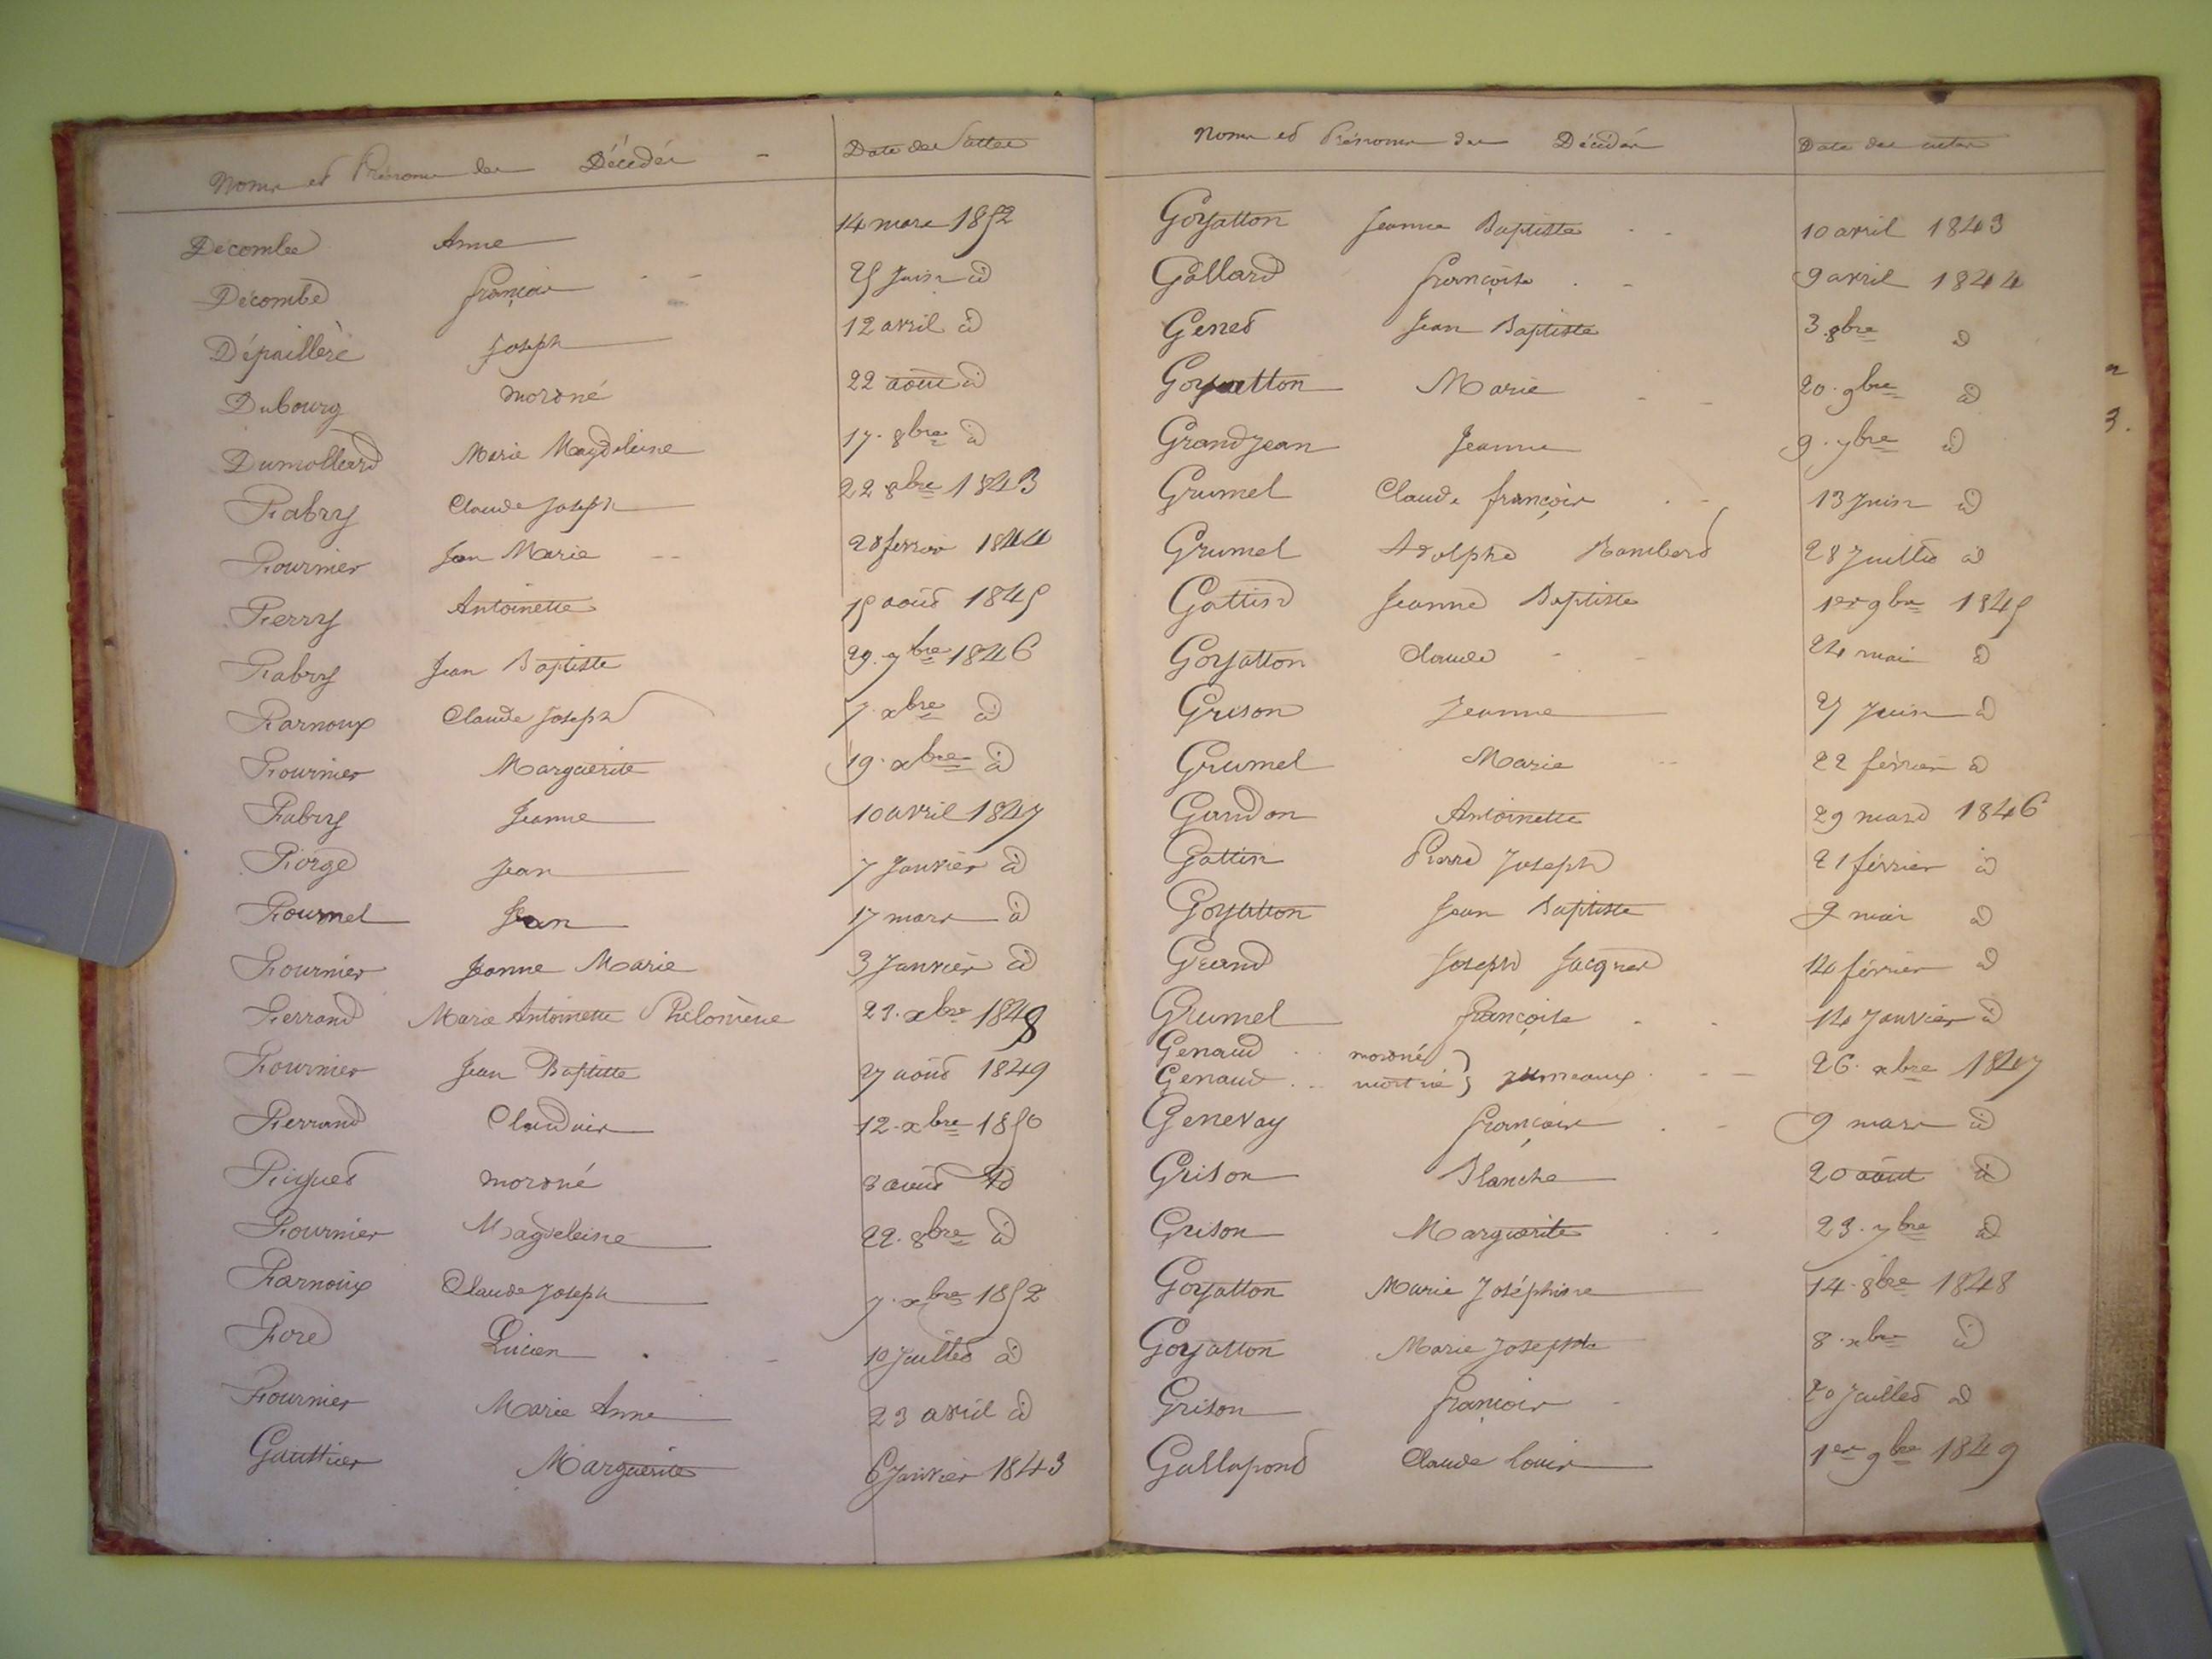 Noms et Prénoms des Décédés - Date des actes
Décombe Anne 14 mars 1852
Décombe françois 25 Juin d
Dépaillère Joseph 12 avril d
Dubourg mort né 22 août d
Dumollard Marie Magdeleine 17. 8bre d
Fabry Claude Joseph 22 8bre 1843
Fournier Jean Marie 28 février 1844
Ferry Antoinette 15 août 1845
Fabry Jean Baptiste 29. 7bre 1846
Farnoux Claude Joseph 7. xbre d
Fournier Marguerite 19. xbre d
Fabry Jeanne 10 avril 1847
Forge Jean 7 Janvier d
Fournel Jean 17 mars d
Fournier Jeanne Marie 3 Janvier d
Ferrand Marie Antoinette Philomène 23. xbre 1848
Fournier Jean Baptiste 27 août 1849
Ferrand Claudius 12. xbre 1850
Figuet mort né 3 août d
Fournier Magdeleine 22. 8bre d
Farnoux Claude Joseph 7. xbre 1852
Fore Lucien 10 Juillet d
Fournier Marie Anne 23 avril d
Gauthier Marguerite 6 Janvier 1843
Noms et Prénoms des Décédés Date des actes
Goyatton Jeanne Baptiste 10 avril 1843
Gallard françoise 9 avril 1844
Genet Jean Baptiste 3. 8bre d
Goyatton Marie 20. 9bre d
Grandjean Jeanne 9. 7bre d
Grumel Claude françois 13 Juin d
Grumel Adolphe Rambert 28 Juillet d
Gattin Jeanne Baptiste 1er 9bre 1845
Goyatton Claude 24 mai d
Grison Jeanne 27 Juin d
Grumel Marie 22 février d
Gandon Antoinette 29 mars 1846
Gattin Pierre Joseph 21 février d
Goyatton Jean Baptiste 9 mai d
Grand Joseph Jacques 14 février d
Grumel françoise 14 Janvier d
Genaud mort né
Genaud mort né } Jumeaux 26. xbre 1847
Genevay françois 9 mars d
Grison Blanche 20 août d
Grison Marguerite 23. 7bre d
Goyatton Marie Joséphine 14. 8bre 1848
Goyatton Marie Josephte 8. xbre d
Grison françois 20 Juillet d
Gallapond Claude Louis 1er 9bre 1849